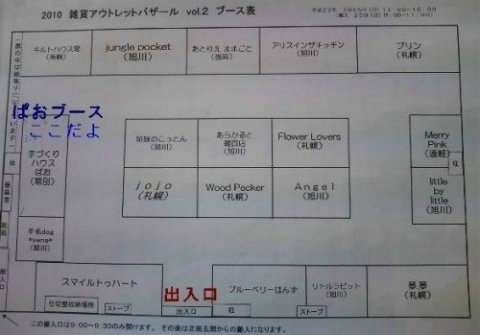 2010 雑貨アウトレットバザール vol.2 ブース表
キルトハウス愛
jungle pocket
(旭川)
あとりえ ままごと
アリスインザキッチン
(旭川)
プリン
(札幌)
ぱおブース
ここだよ
手づくり
ハウス
ぱお
姉妹のこっとん
(旭川)
あらかると
(旭川)
Flower Lovers
(札幌)
Merry
Pink
(遠軽)
jojo
(札幌)
Wood Pecker
(札幌)
Angel
(旭川)
little
by
little
(旭川)
*sana*
(旭川)
スマイルトゥハート
出入口
ブルーベリーはんず
リトルラビット
(旭川)
夢夢
(札幌)
ストーブ
出入口
柱
ストーブ
この搬入口は9:00~9:30のみ開けます。その後は正面玄関からの搬入になります。